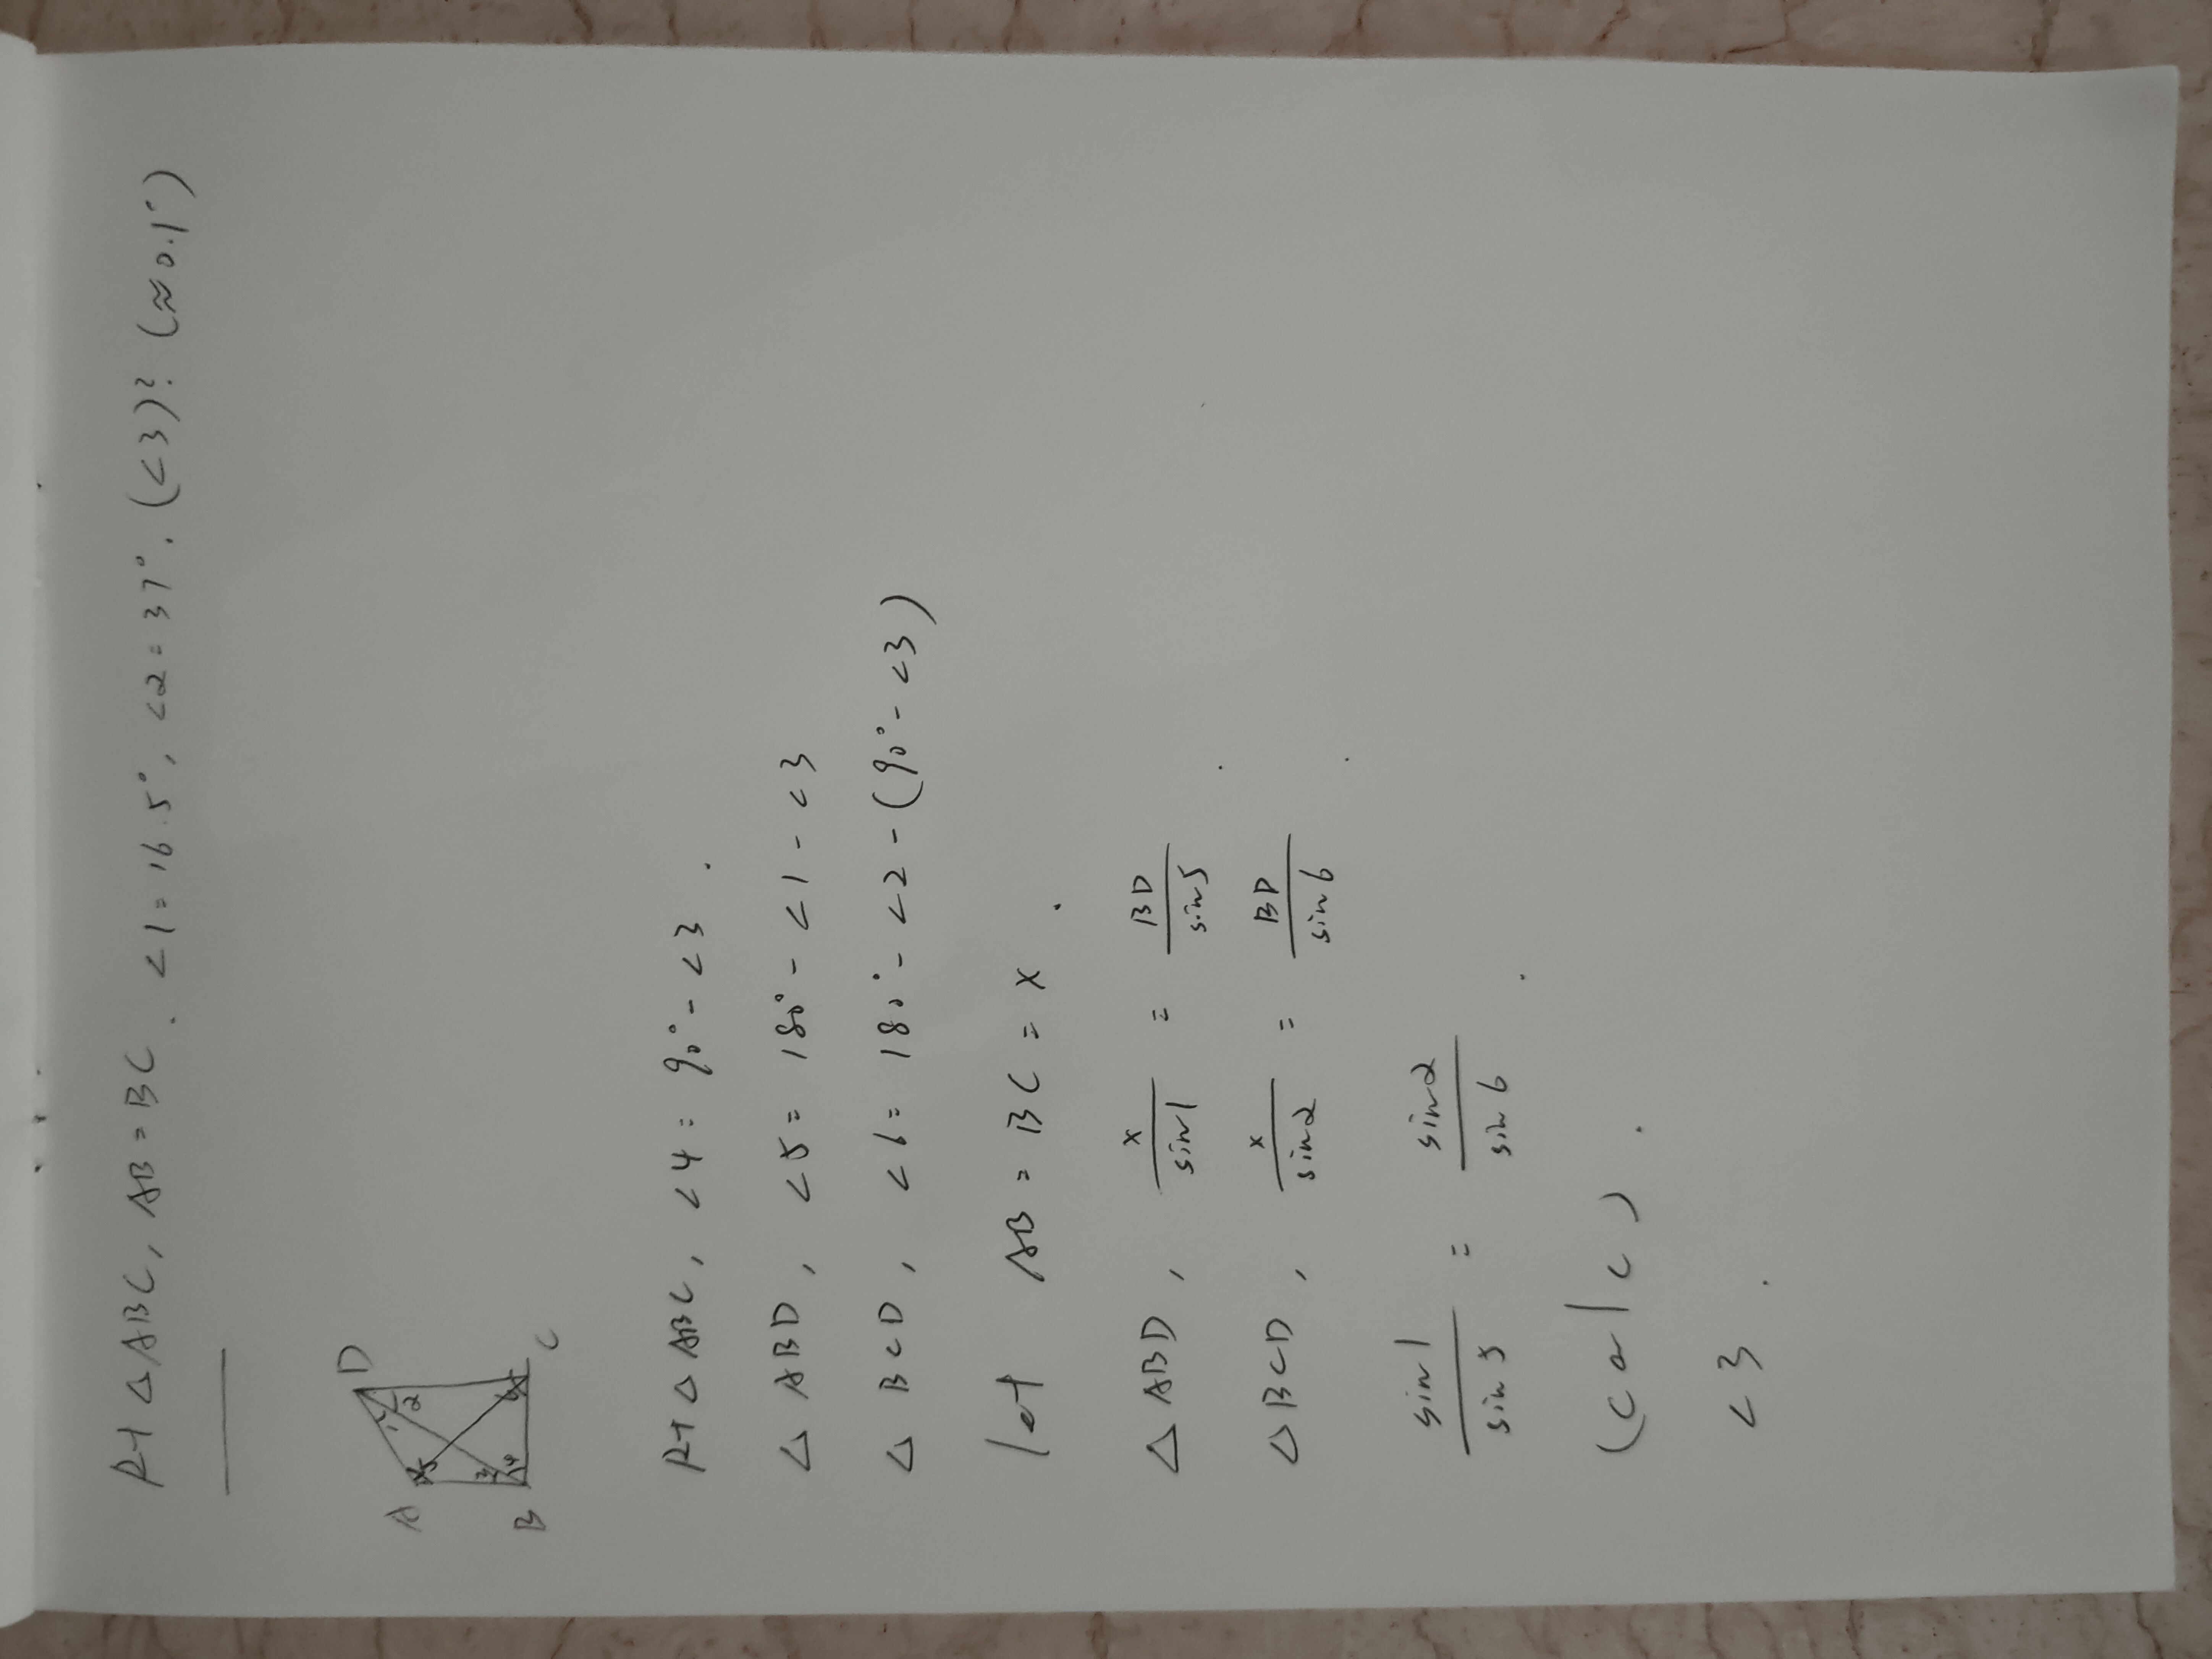 Rt △ABC, AB = BC. ∠1 = 16.5°, ∠2 = 37°. (∠3)? (≈0.1°)
D
A
1
2
5
3
4
6
B
C
Rt △ ABC, ∠4 = 90° - ∠3.
△ ABD, ∠5 = 180° - ∠1 - ∠3
△ BCD, ∠6 = 180° - ∠2 - (90° - ∠3)
let AB = BC = x.
△ ABD, x/sin1 = BD/sin5.
△ BCD, x/sin2 = BD/sin6.
sin1/sin5 = sin2/sin6.
(calc).
∠3.